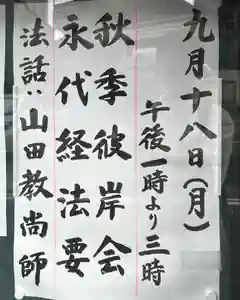 九月十八日(月)
午後一時より三時
秋季彼岸会
永代経法要
法話:山田教尚師